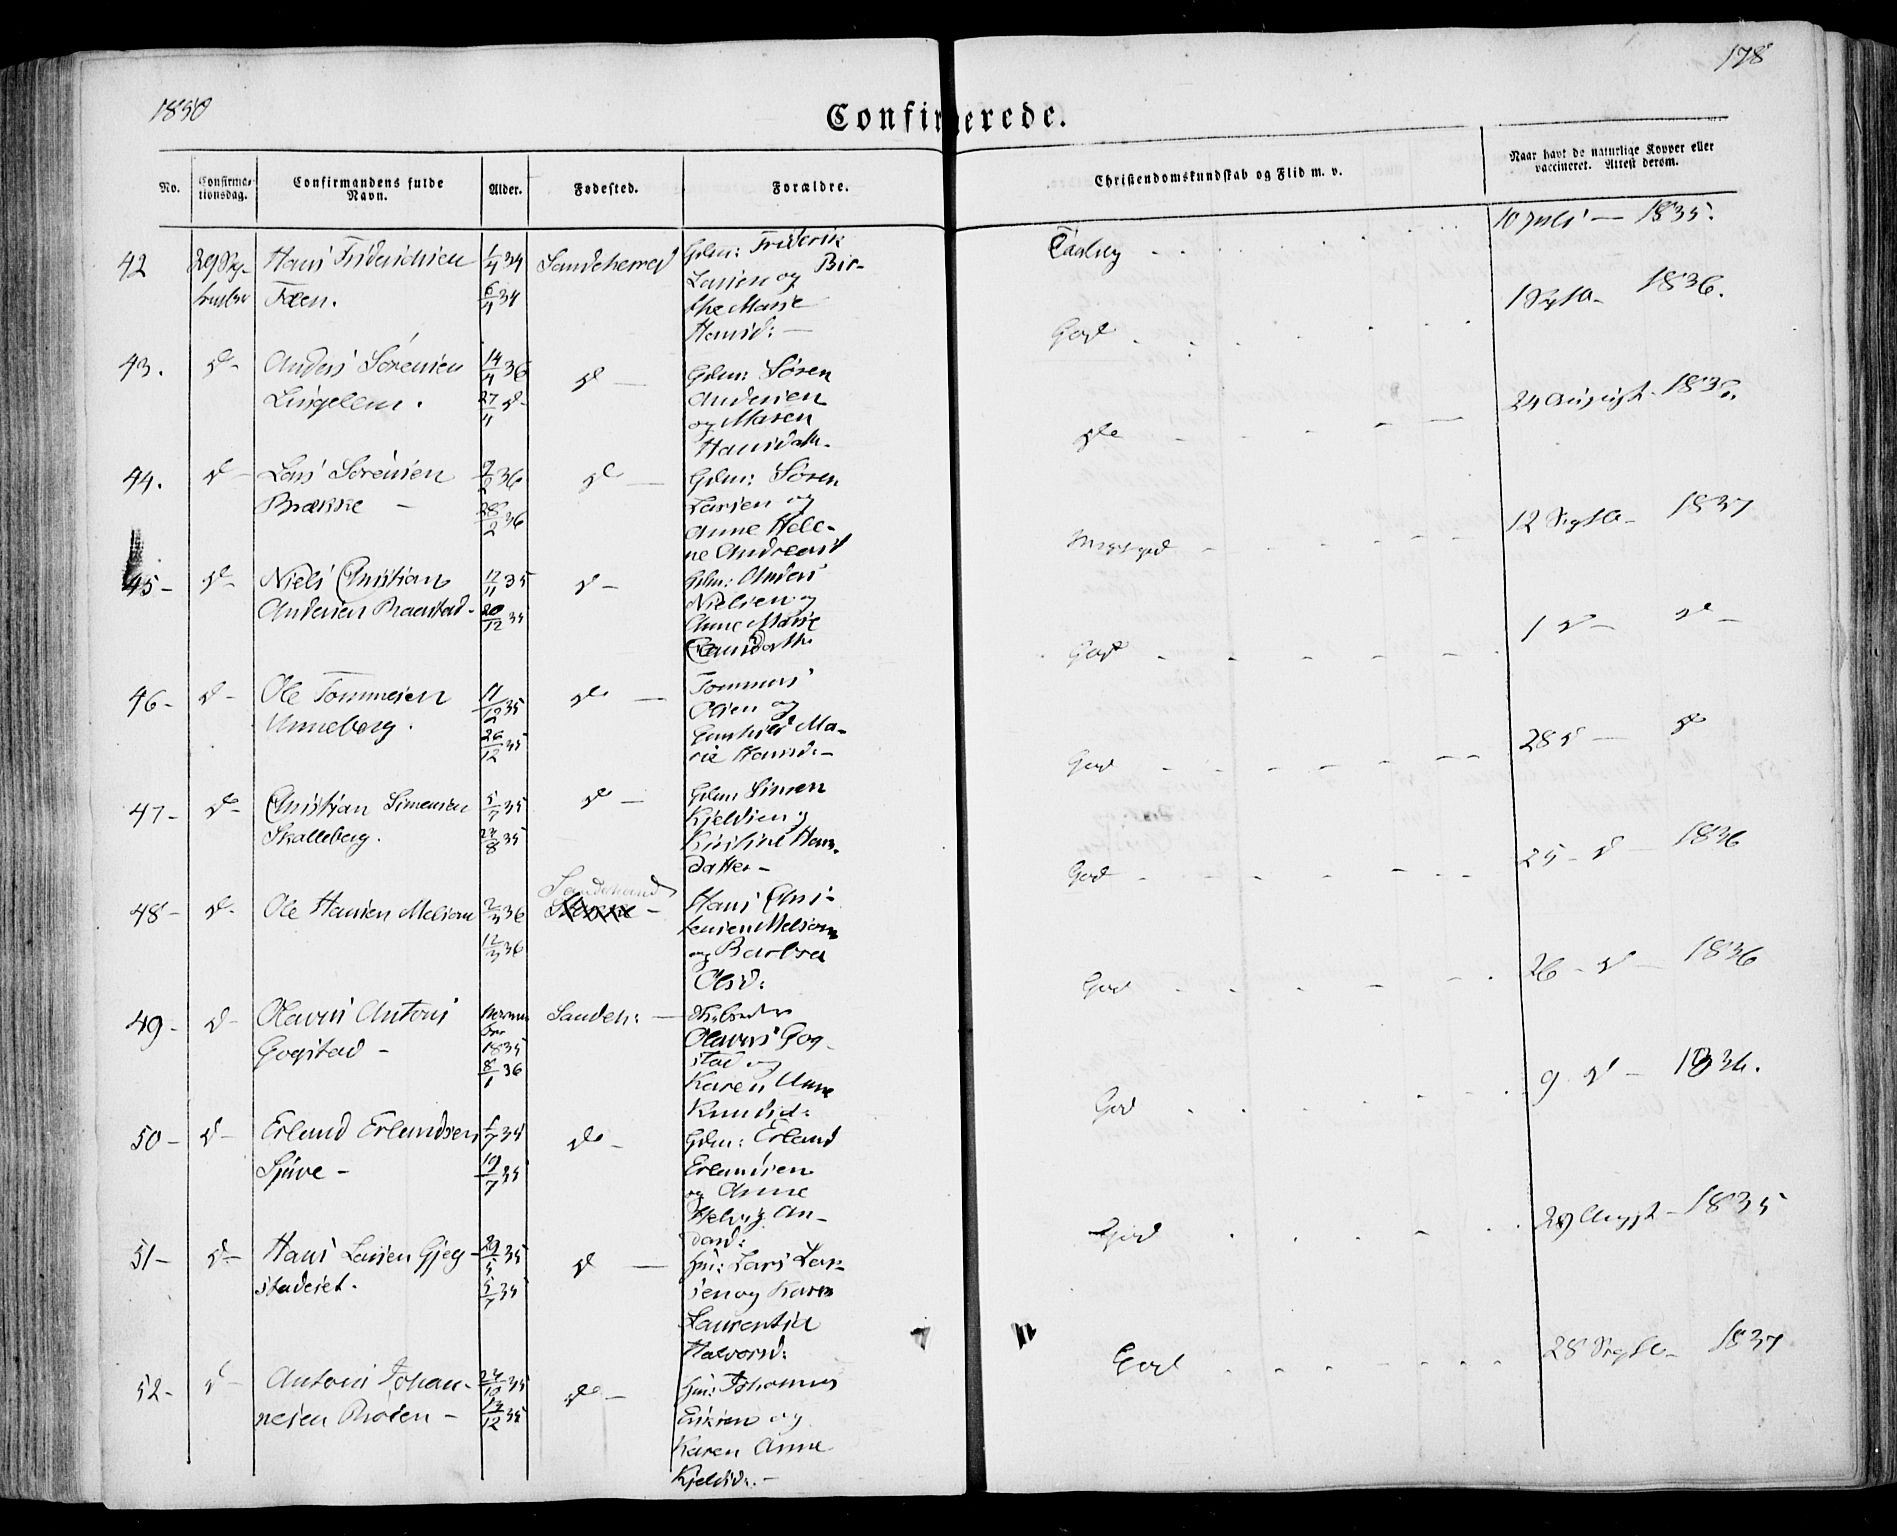 1850
178
Confirmerede.
No.
Confirma-
tionsdag.
Confirmandens fulde
Navn.
Alder.
Fødested.
Forældre.
Christendomskundskab og Flid m. v.
Naar havt de naturlige Kopper eller
vaccineret. Attest derom.
42
Hans Friderichsen
Fæen.
1/4 34
6/4 34
Sandeherred
Gdm: Friderik
Larsen og Bir-
the Marie
Hansd: —
10 Juli — 1835.
43.
d -
Anders Sørensen
Lingelem.
14/4 36
d —
Gdm: Søren
Andersen
og Maren
Hansdatt.
God
1836.
44.
d -
Lars Sørensen
Brække —
28/2 36
d —
Gdm: Søren
Larsen og
Anne Hele-
ne Andreasd
do
24 August - 1836.
45 -
d -
Niels Christian
Andersen
12/11 35
20/12 35
d -
Gdm: Anders
Nielsen og
Anne Marie
Meget god
12 Septb - 1837
46 -
d -
Ole Tommesen
Unneberg.
11/12 35
26/12 35
do —
Tommes
Olsen og
Gunhild Ma-
rie Hansd: -
God
1 d - d -
47 -
d -
Christian Simensen
Skalleberg.
5/7 35
23/8 35
d —
Gdm Simen
Kjeldsen og
Kirstine Hans
datter -
God
28 d — d
48 -
d -
Ole Hansen Melsom
2/3 36
12/3 36
Sandeherred
Hans Chri-
stensen Melsom
og Barbra
Olsd:
God
25 - d — 1836
49 -
d -
Olavus Antons
Gogstad -
1835
8/1 36
Sandeh: —
Olavus Gog-
stad og
Karen Anne
Knudsd:
God
26 - d — 1836
50 -
d -
Erland Erlandsen
19/7 35
do -
Gdm: Erland
Erlandsen
og Anne
Helvig An-
dersd:
God
9. d - 1836.
51 -
d -
Hans Larsen Gjeg-
stadeiet.
29/5 35
5/7 35
d —
Hm: Lars Lar-
sen og Karen
Laurentia
Halvorsd:
God
29 August - 1835
52 -
d -
Antons Johan-
nesen
13/12 35
do -
Hm: Johannes
Eriksen og
Karen Anne
Kjeldsd: -
God
28 Septb - 1837